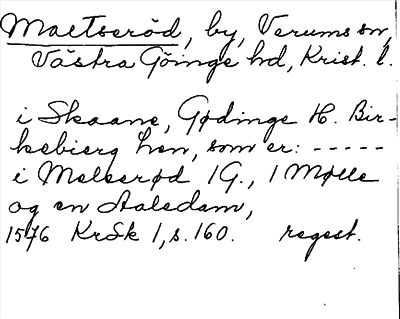 Maltseröd, by, Verums sn,
Västra Göinge hd, Krist. l.
i Skaane, Gødinge H. Bir-
kebierg Len, som er: -----
i Melserød 1 G., 1 Mølle
og en Aaledam,
1576 KrSk 1, s. 160. regest.